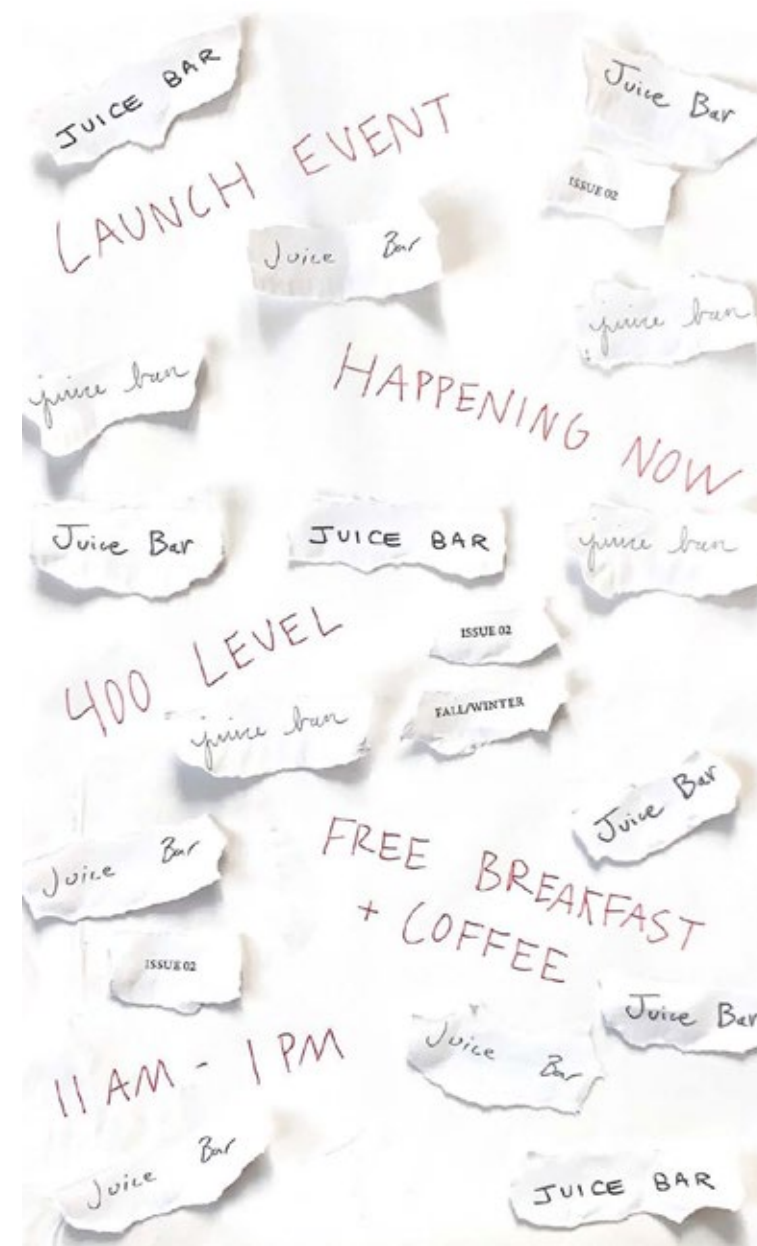 JUICE BAR
Juice Bar
LAUNCH EVENT
ISSUE 02
Juice Bar
juice bar
juice bar
HAPPENING NOW
Juice Bar
JUICE BAR
juice bar
400 LEVEL
ISSUE 02
FALL/WINTER
juice bar
Juice Bar
FREE BREAKFAST
+ COFFEE
Juice Bar
ISSUE 02
Juice Bar
Juice Bar
11 AM - 1 PM
Juice Bar
JUICE BAR